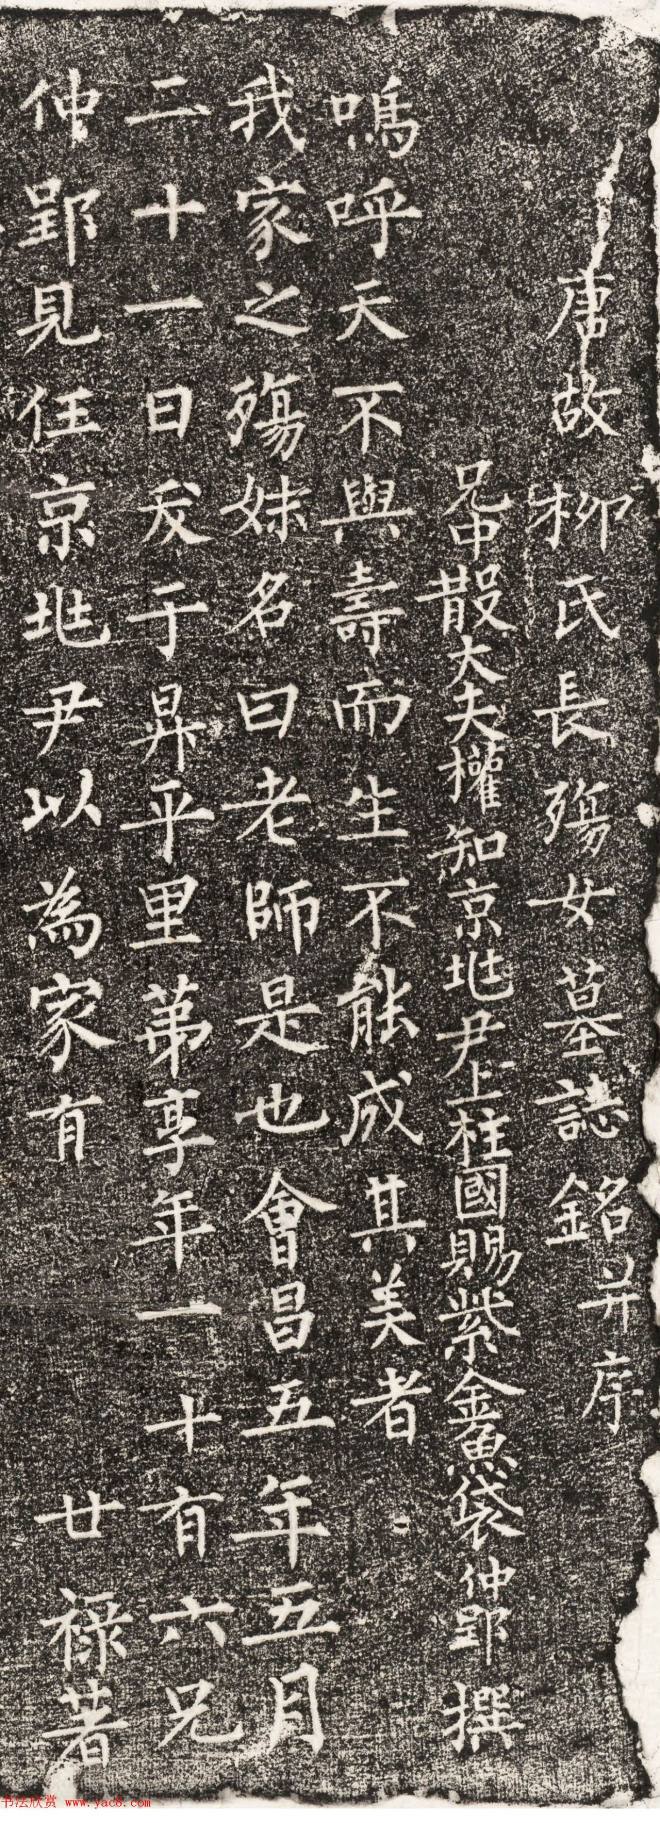 唐故柳氏長殤女墓誌銘并序
兄中散大夫權知京兆尹上柱國賜紫金魚袋仲郢撰
嗚呼天不與壽而生不能成其美者
我家之殤妹名曰老師是也會昌五年五月
二十一日歿于昇平里第享年一十有六兄
仲郢見任京兆尹以為家有廿祿著
书法欣赏 www.yac8.com